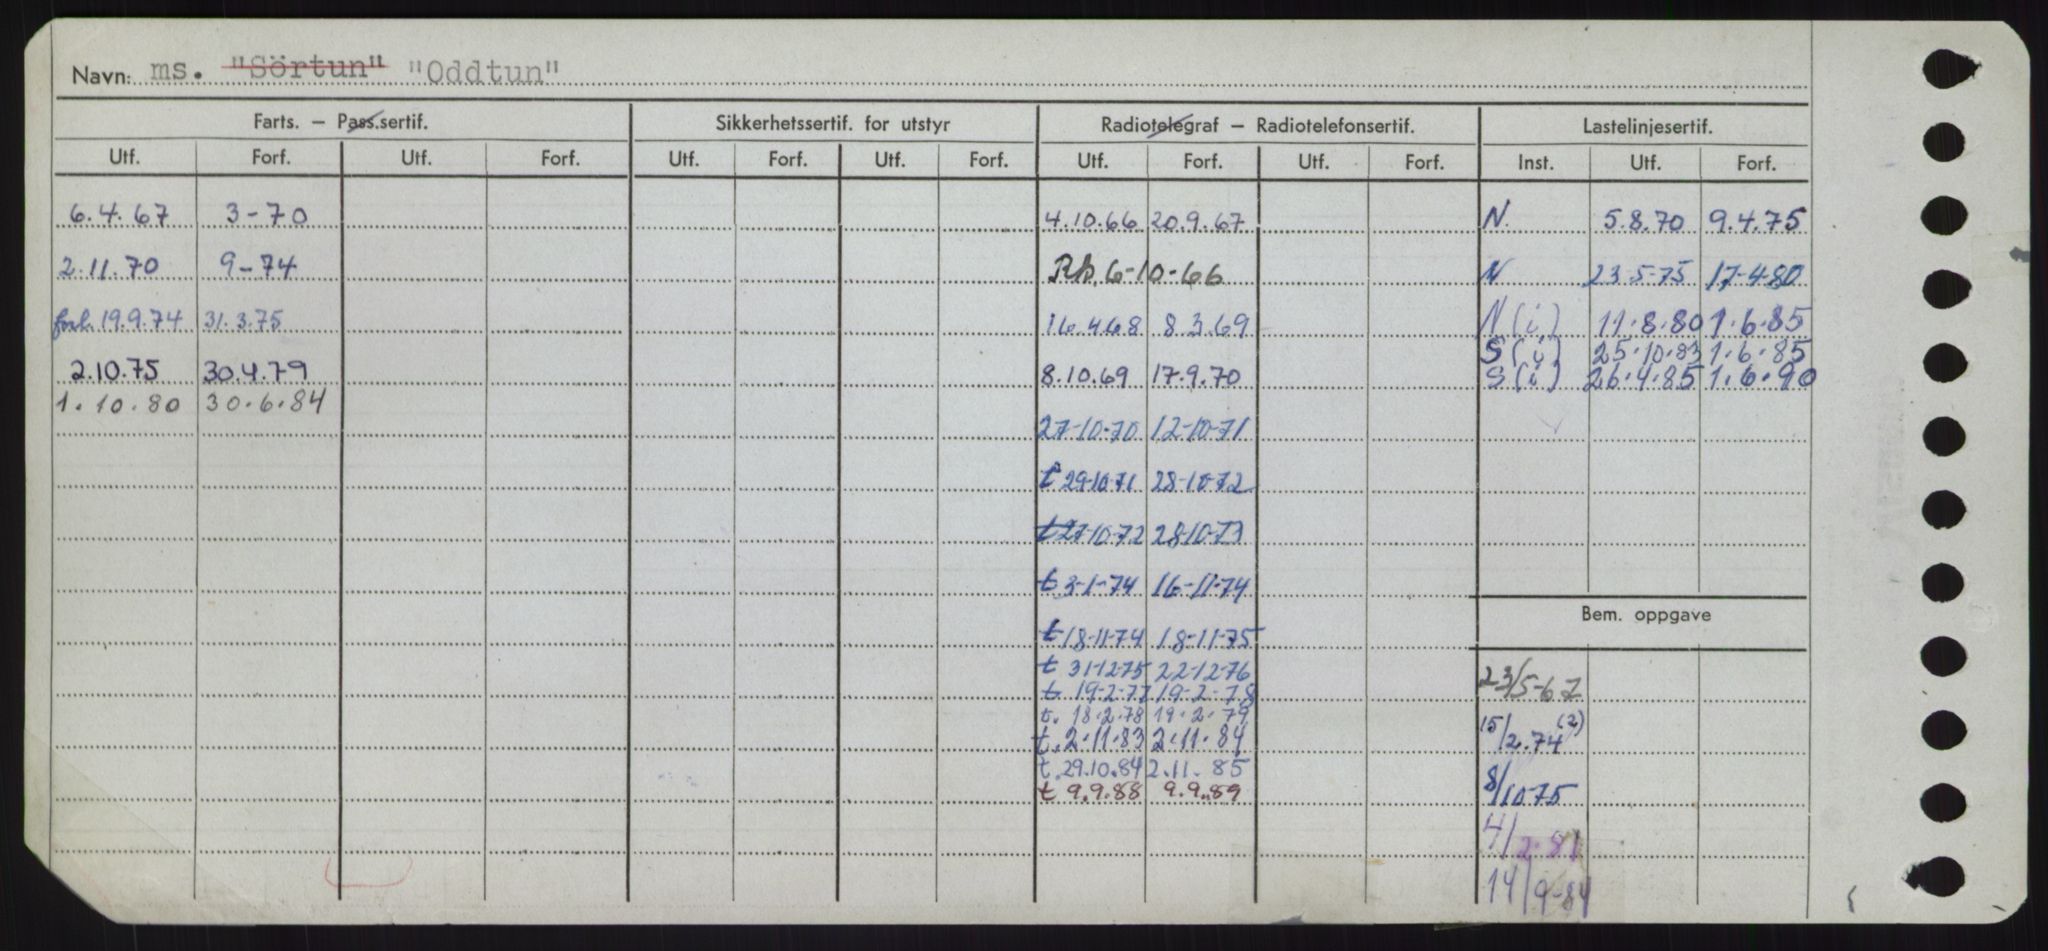 Navn: ms. "Sörtun" "Oddtun"
Farts. – Pass.sertif. Sikkerhetssertif. for utstyr Radiotelegraf – Radiotelefonsertif. Lastelinjesertif.
Utf. Forf. Utf. Forf. Utf. Forf. Utf. Forf. Utf. Forf. Utf. Forf. Inst. Utf. Forf.
6.4.67 3-70 4.10.66 20.9.67 N. 5.8.70 9.4.75
2.11.70 9-74 6-10-66 N 23.5-75 17-4-80
forl. 19.9.74 31.3.75 16.4.68 8.3.69 N(i) 11.8.80 1.6.85
S(i) 25.10.83 1.6.85
2.10.75 30.4.79 8.10.69 17.9.70 S(i) 26.4.85 1.6.90
1.10.80 30.6.84
27-10-70 12-10-71
t 29-10-71 28-10-72
t 27-10-72 28-10-73
t 3-1-74 16-11-74
Bem. oppgave
t 18-11-74 18-11-75
t 31-12-75 22-12-76
t. 19-2-77 19-2-78 23/5-67
t. 18.2.78 19.2.79 15/2.74 (2)
t. 2.11.83 2.11.84
t. 29.10.84 2.11.85
t 9.9.88 9.9.89 8/10 75
4/2.81
14/9-84